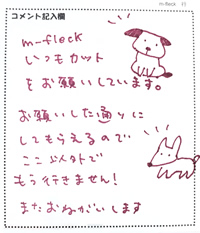 m-fleck 11
コメント記入欄
m-fleck
いつもカット
をお願いしています。
お願いした通りに
してもらえるので
ここ以外で
もう行きません!
またおねがいします